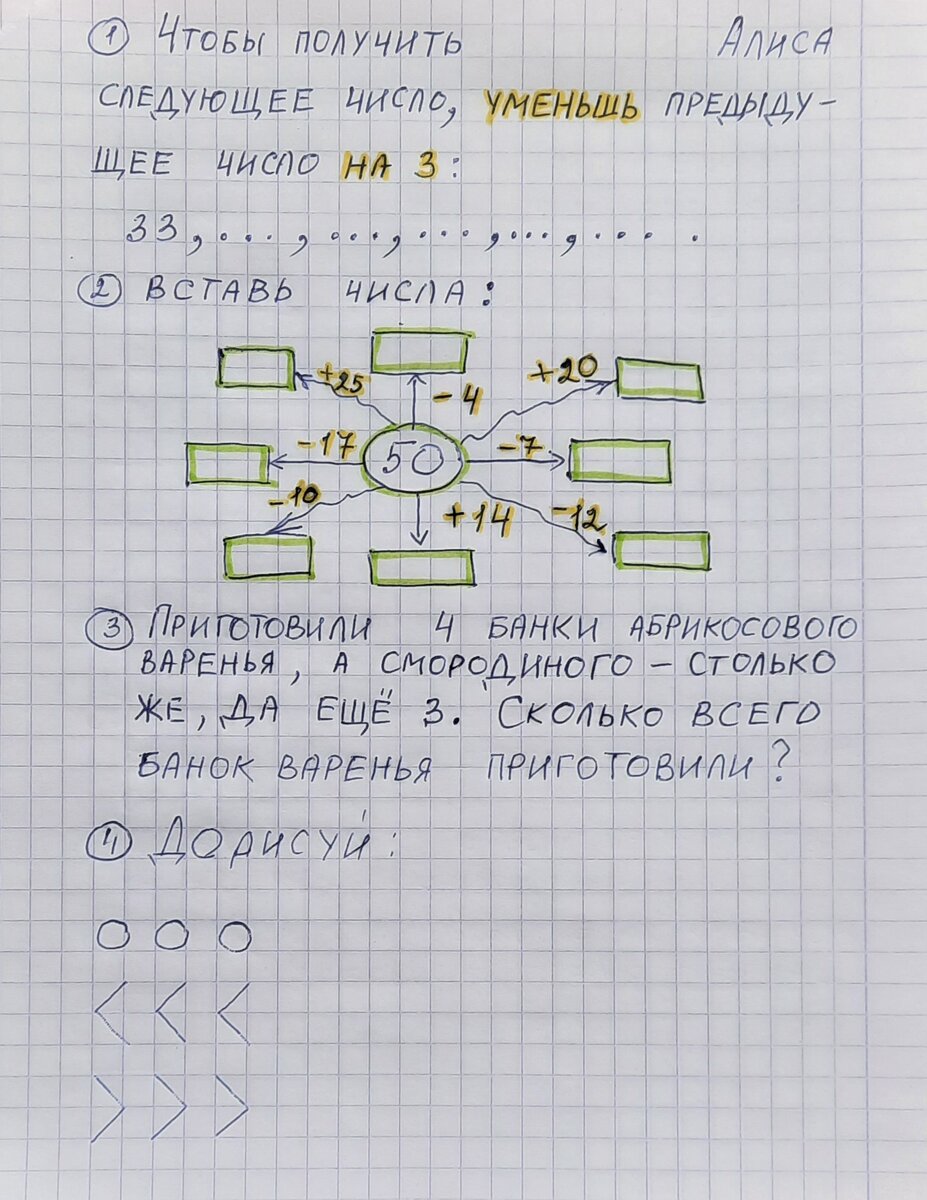 ① Чтобы получить Алиса
следующее число, уменьшь предыду-
щее число на 3:
33, ..., ..., ..., ..., ... .
② Вставь числа:
+25 -4 +20
-17 50 -7
-10 +14 -12
③ Приготовили 4 банки абрикосового
варенья, а смородиного – столько
же, да ещё 3. Сколько всего
банок варенья приготовили?
④ Дорисуй:
○ ○ ○
< < <
> > >